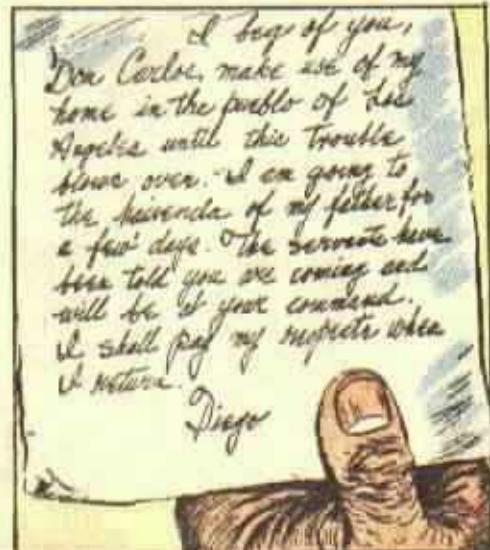 I beg of you,
Don Carlos, make use of my
home in the pueblo of Los
Angeles until this trouble
blows over. I am going to
the hacienda of my father for
a few days. The servants have
been told you are coming and
will be at your command.
I shall pay my respects when
I return.
Diego